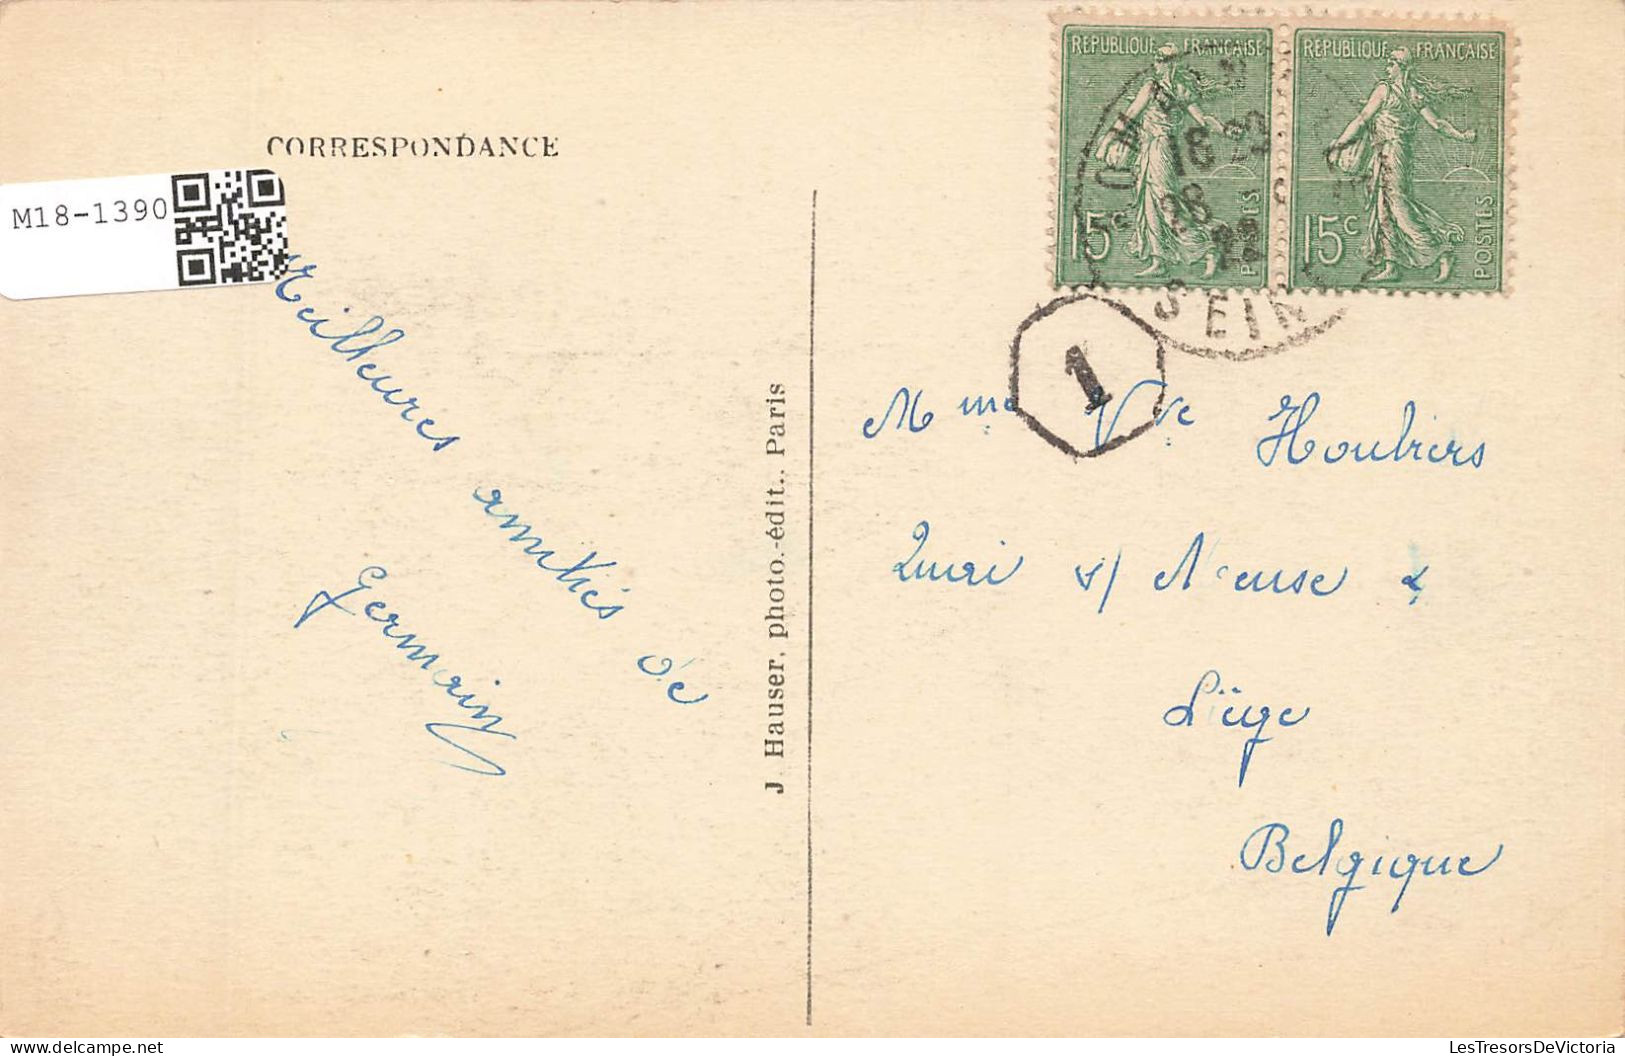 CORRESPONDANCE
M18-1390
Meilleures amitiés de
Germain
J. Hauser, photo.-édit., Paris
RÉPUBLIQUE FRANÇAISE
15c
POSTES
RÉPUBLIQUE FRANÇAISE
15c
POSTES
SEINE
1
Mme Vve Houbiers
Quai s/ Meuse
Liège
Belgique
LesTresorsDeVictoria